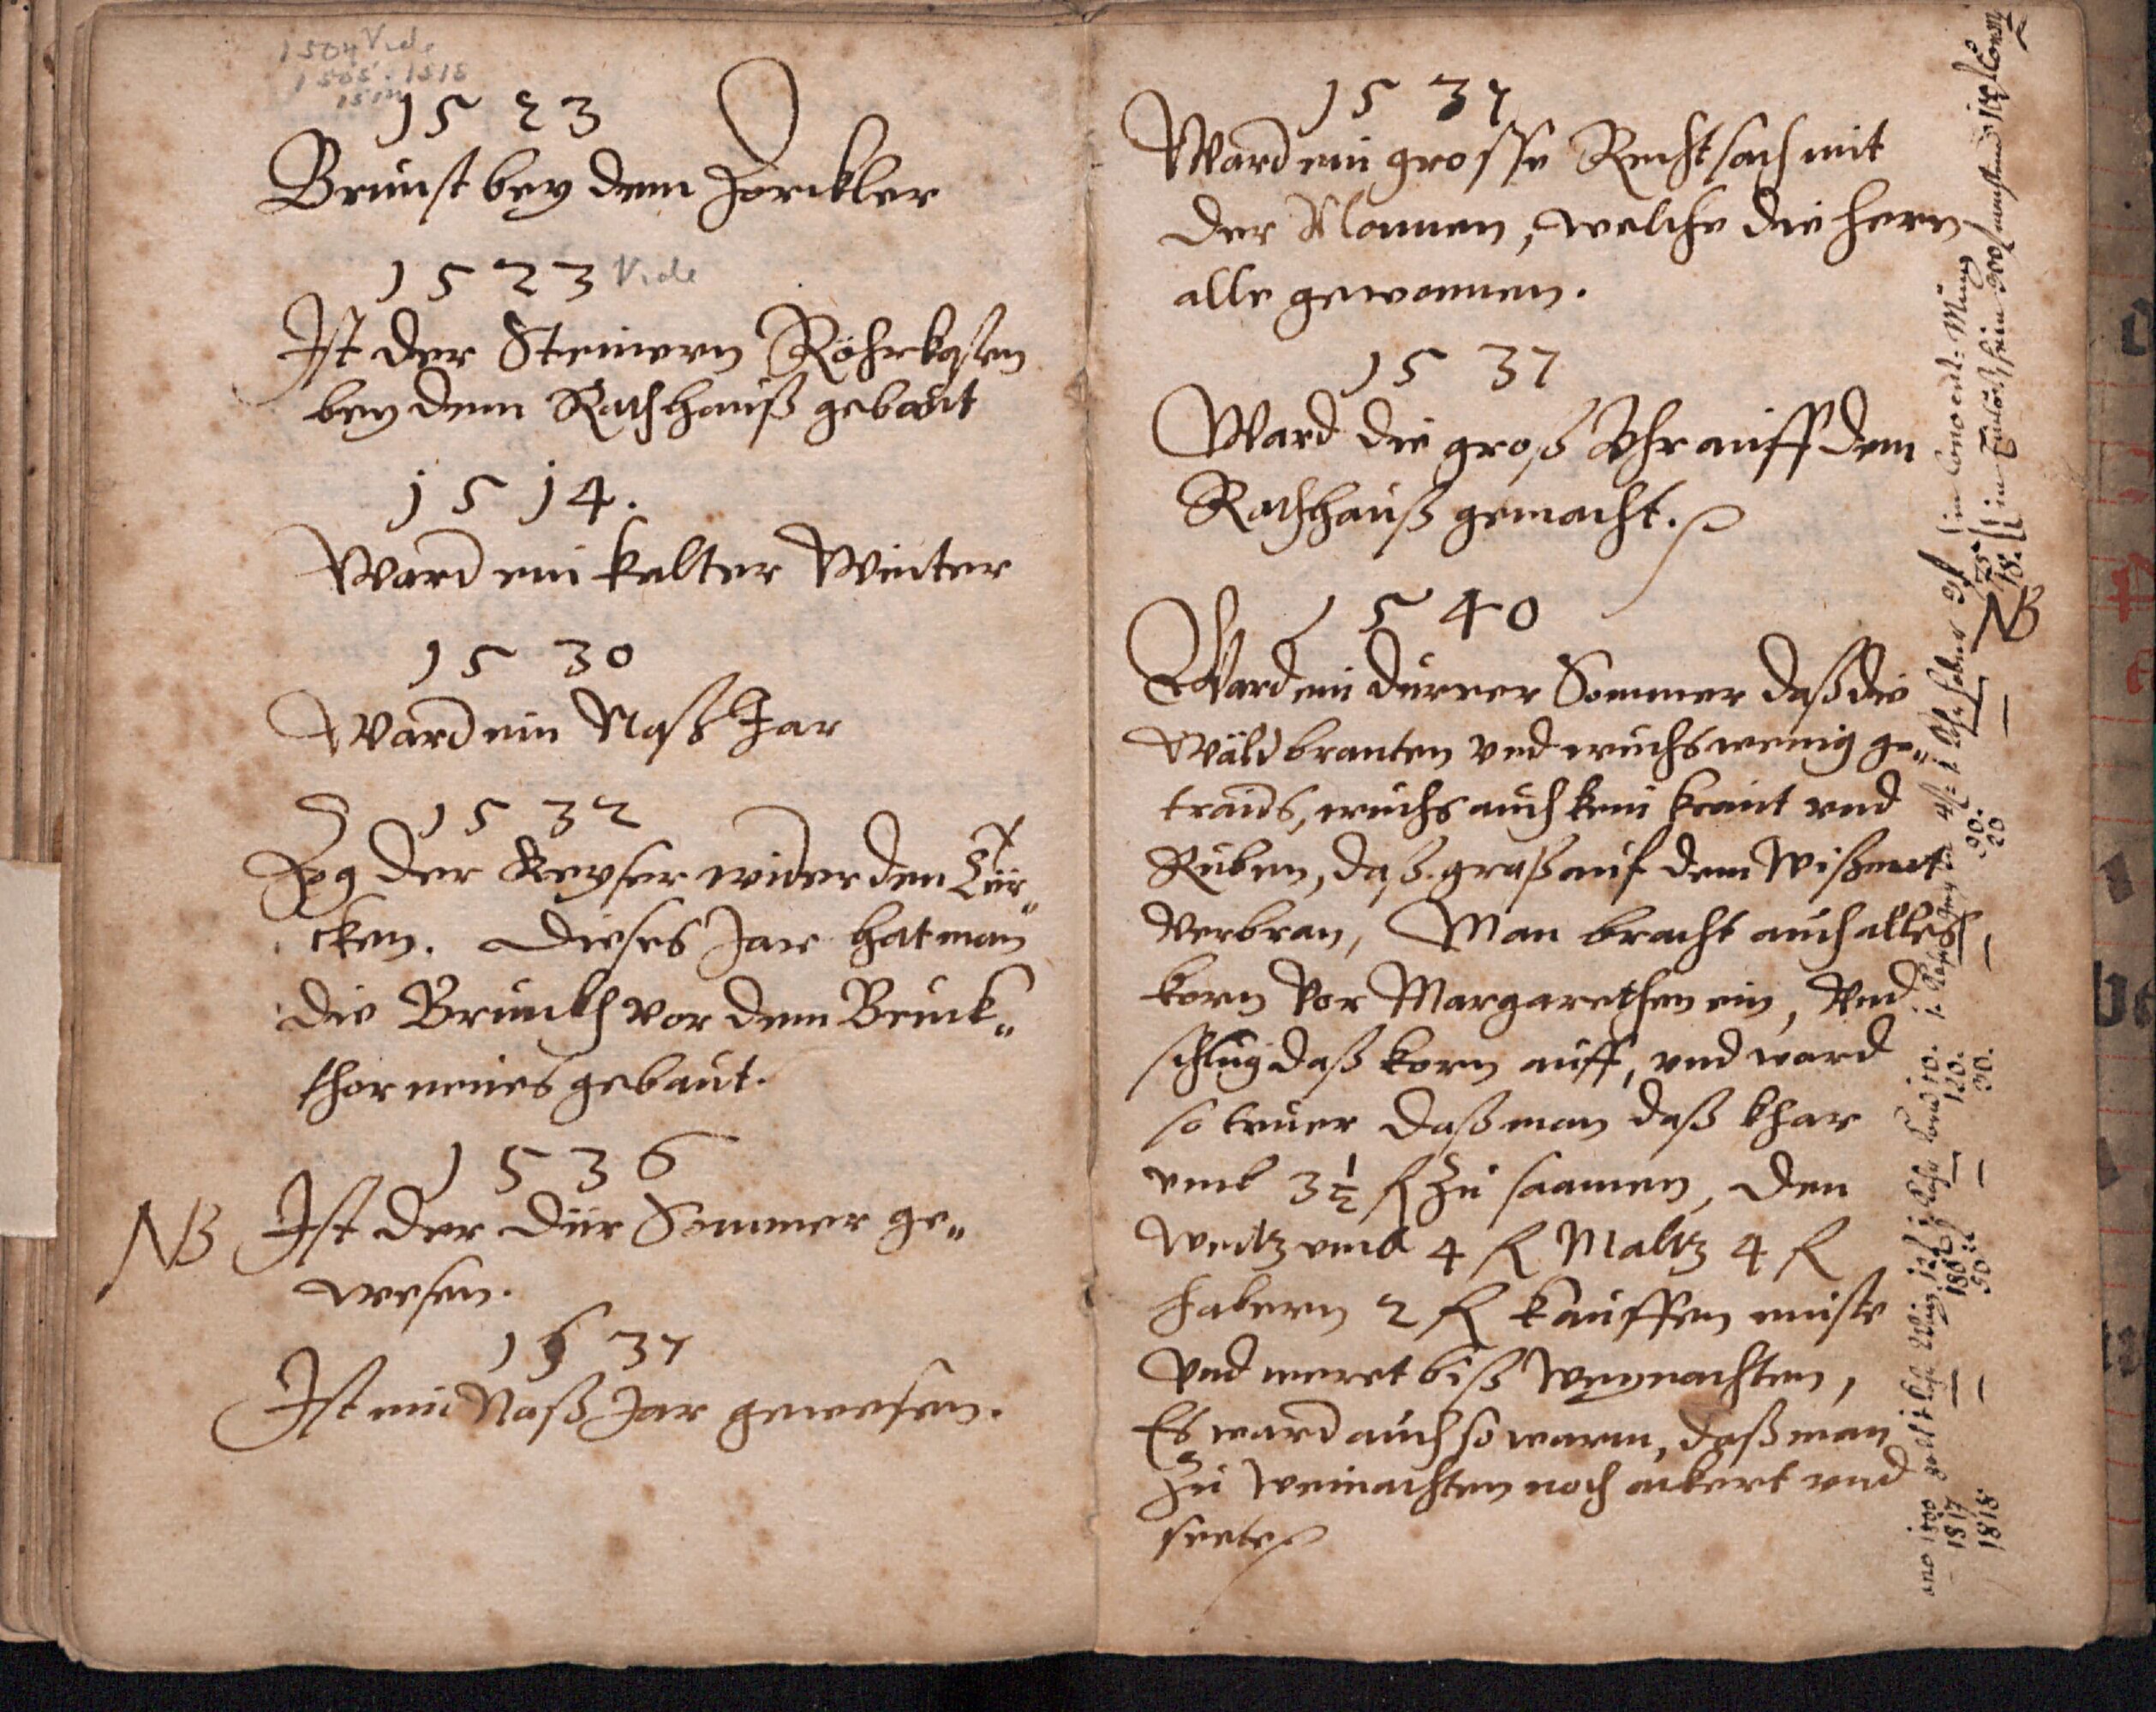 1504 Vide
1505. 1515
1523
Brunst bey dem Horckler
1523 Vide
Ist der Steinern Röhrkasten
bey dem Rathhauß gebaut
1514.
Ward ein kalter Winter
1530
Ward ein Naß Jar
1532
Zog der Keyser wider den Tür„
cken. Dieses Jar hat man
die Bruckh vor dem Bruck„
thor neues gebaut.
1536
NB Ist der dür Sommer ge„
wesen.
1537
Ist ein Naß Jar gewesen.
1537
Ward ein grosse Rechtsach mit
der Mannen, welche die hern
alle gewonnen.
1537
Ward die groß Vhr auff dem
Rathhauß gemacht.
1540
Ward ein durrer Sommer daß die
Wäld branten vnd wuchs wenig ge„
traids, wuchs auch kein kraut vnd
Ruben, daß graß auf dem Wißmat
verbran, Man bracht auch alles
korn vor Margarethen ein, Vnd
schlug daß korn auff, vnd ward
so teuer daß man daß khar
vmb 3 1/2 fl zu saamen, den
Weitz vmb 4 fl Maltz 4 fl
habern 2 fl kauffen muste
Vnd weret biß Weynachten,
Es ward auch so warm, daß man
zu Weinachten noch ackert vnd
seete
NB
1817
180
120.
90.
18.
1818
50
30.
20